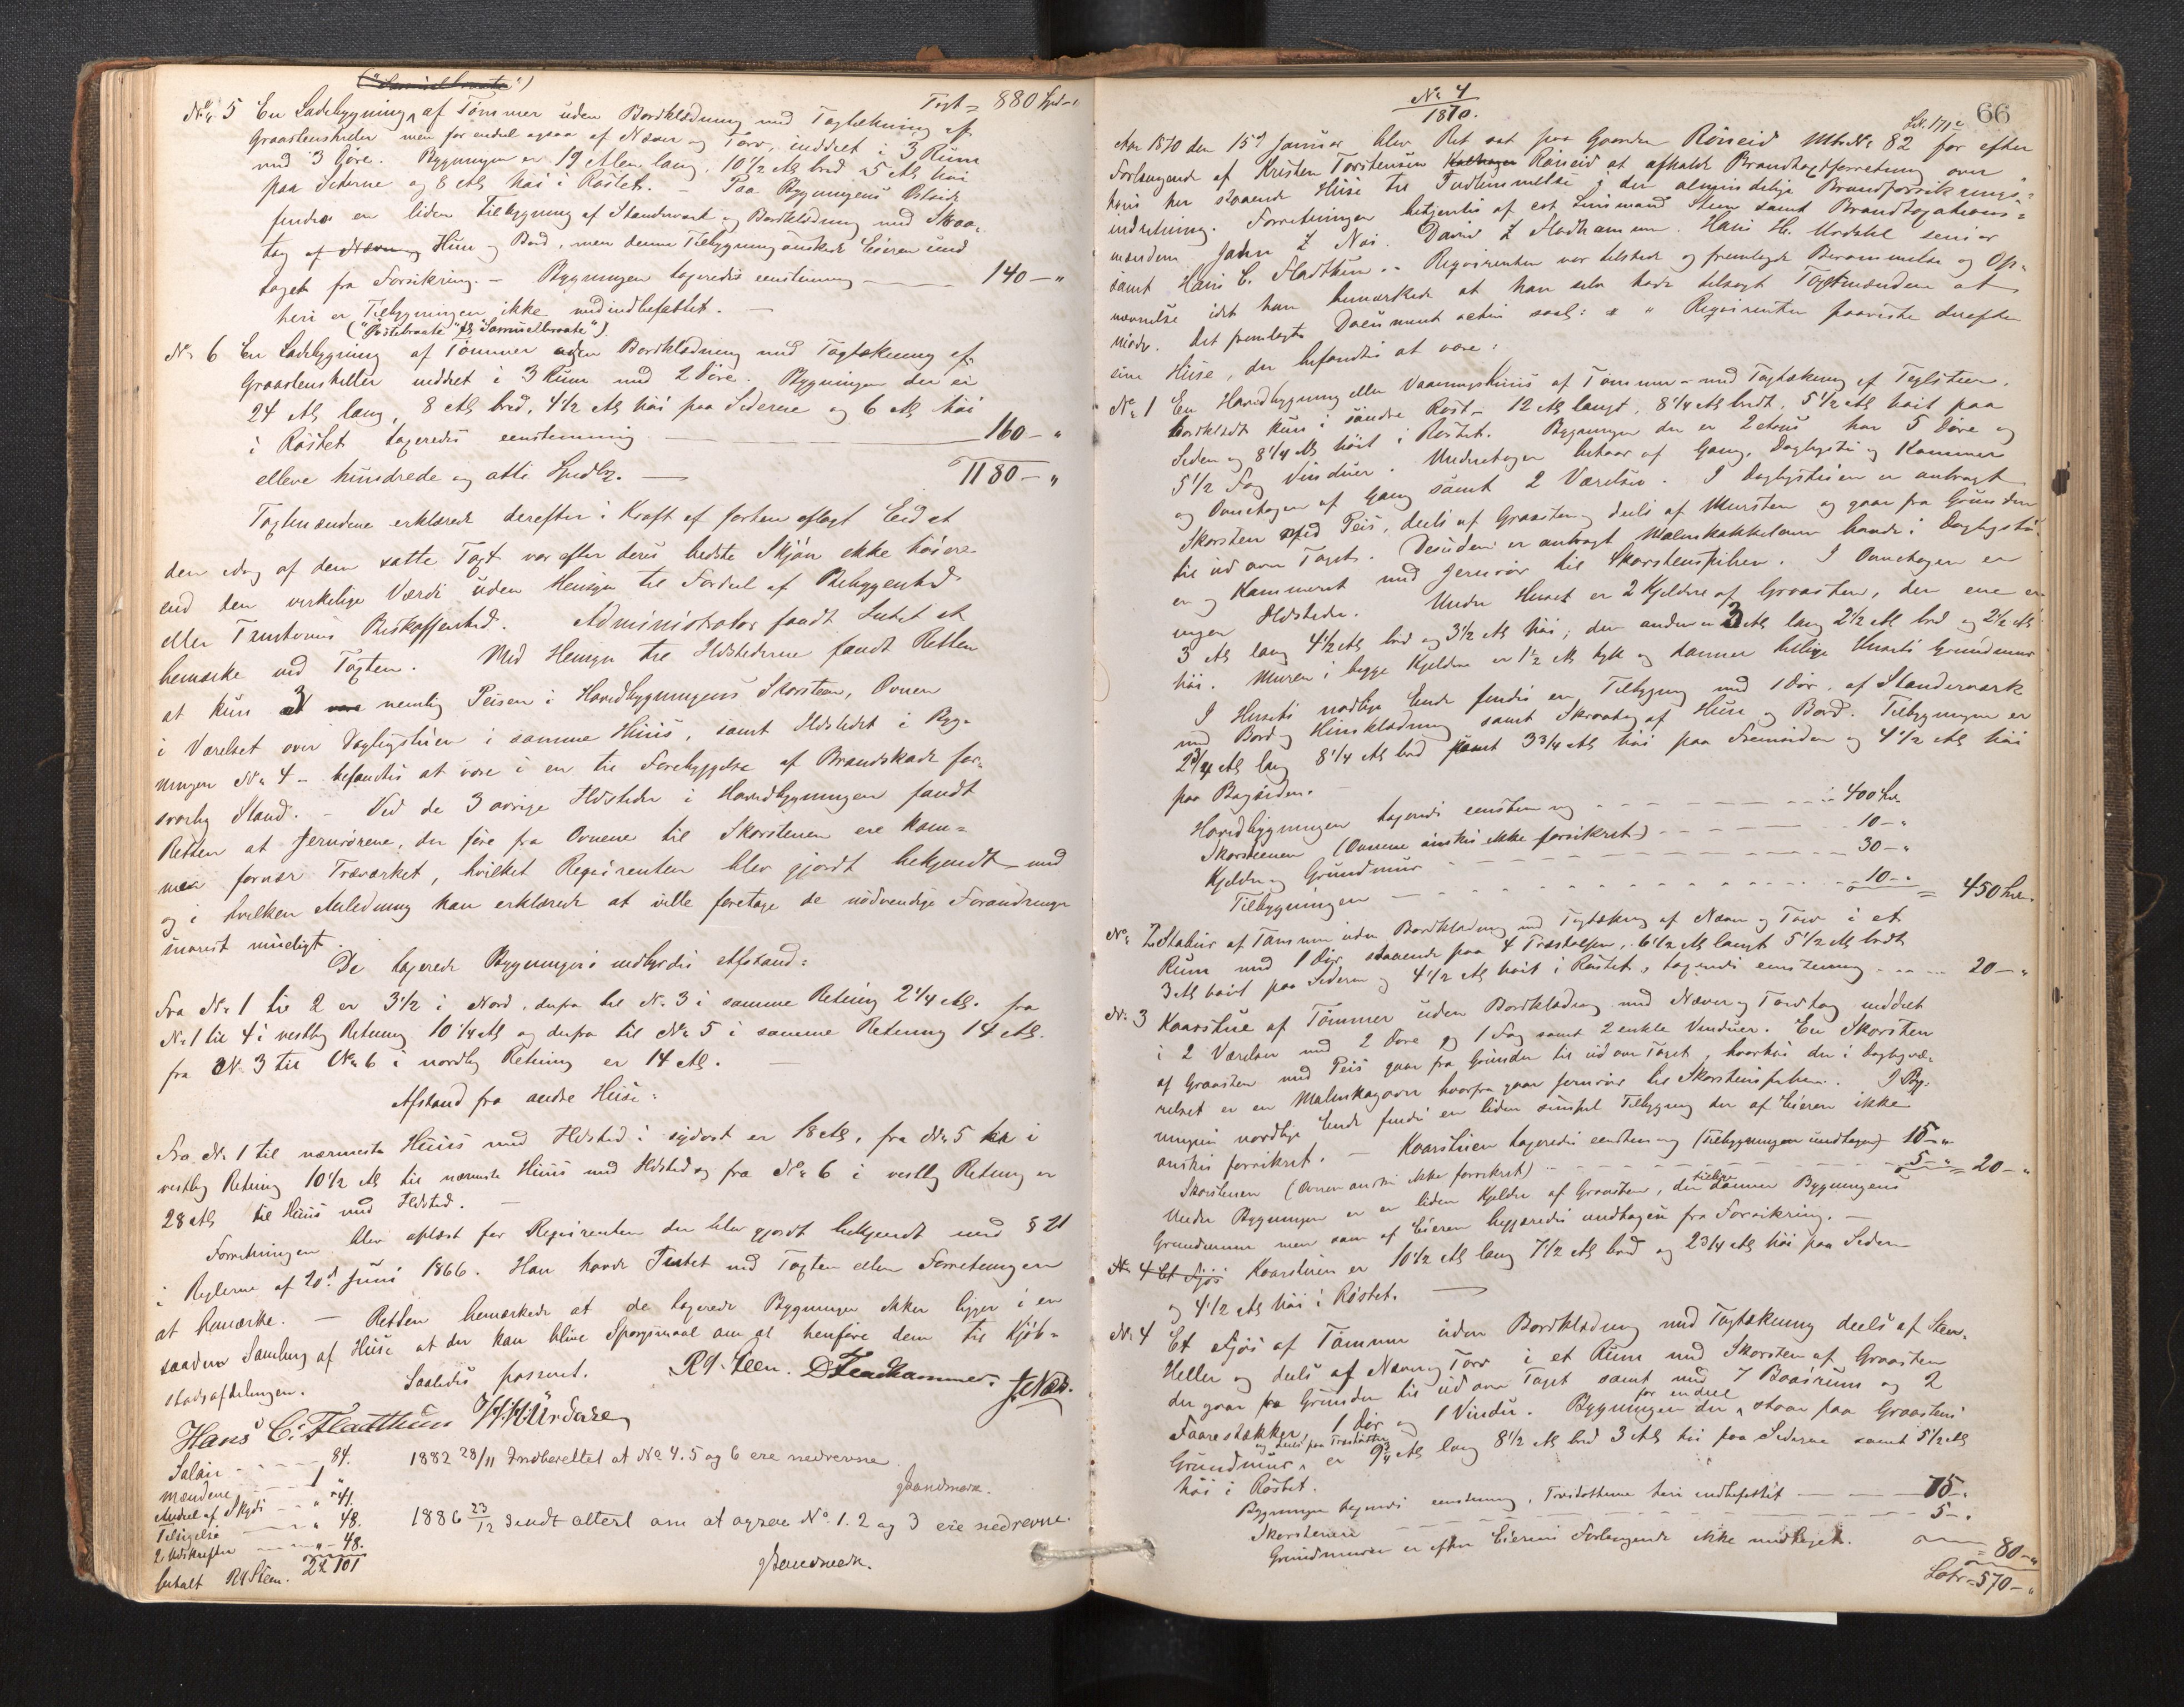 ("Samuelbraate")
Tagt = 880 Spd - "
No 5 En Ladebygning af Tømmer uden Bordklædning med Tagtækning af
Graastensheller men for endel ogsaa af Næver og Torv, inddelt i 3 Rum
med 3 Døre. Bygningen er 19 Alen lang, 10 1/2 Al bred, 5 Al høi
paa Siderne og 8 Al høi i Røstet. – Paa Bygningens Østside
findes en liden Tilbygning af Standværk og Bordklædning med Skraa-
tag af Næver Hun og Bord, men denne Tilbygning ønskede Eieren und-
taget fra Forsikring. – Bygningen taxeredes eenstemmig 140 – "
heri er Tilbygningen ikke medindbefattet. –
("Østebraate" "Samuelbraate")
No 6 En Ladebygning af Tømmer uden Bordklædning med Tagtækning af
Graastensheller inddelt i 3 Rum med 2 Døre. Bygningen der er
24 Al lang, 8 Al bred, 4 1/2 Al høi paa Siderne og 6 Al høi
i Røstet taxeredes eenstemmig 160 – "
elleve hundrede og otti Spdlr. – 1180 – "
Taxtmændene erklærede derefter i Kraft af forhen aflagt Eed at
den idag af dem satte Taxt var efter deres bedste Skjøn ikke høiere
end den virkelige Værdi uden Hensyn til Fordeel af Beliggenhed
eller Tomtens Beskaffenhed. Administrator fandt Intet at
bemærke ved Taxten. Med Hensyn til Ildstederne fandt Retten
at kun 3 nemlig Peisen i Hovedbygningens Skorsteen, Ovnen
i Værelset over Dagligstuen i samme Huus, samt Ildstedet i Byg-
ningen No 4 – befandtes at være i en til Forebyggelse af Brandskade for-
svarlig Stand. – Ved de 3 øvrige Ildsteder i Hovedbygningen fandt
Retten at Jernrørene, der føre fra Ovnene til Skorstenen ere kom-
men fornær Træværket, hvilket Reqvirenten blev gjordt bekjendt med
og i hvilken Anledning han erklærede at ville foretage de nødvendige Forandringer
snarest mueligt.
De taxerede Bygningers indbyrdes Afstand:
Fra No 1 til 2 er 3 1/2 i Nord, derfra til No 3 i samme Retning 2 1/4 Al. fra
No 1 til 4 i vestlig Retning 10 1/4 Al og derfra til No 5 i samme Retning 14 Al.
fra No 3 til No 6 i nordlig Retning er 14 Al. –
Afstand fra andre Huse:
Fra No 1 til nærmeste Huus med Ildsted i sydost er 18 Al, fra No 5 i
vestlig Retning 10 1/2 Al til nærmeste Huus med Ildsted og fra No 6 i vestlig Retning er
28 Al til Huus med Ildsted. –
Forretningen blev oplæst for Reqvirenten der blev gjordt bekjendt med § 21
i Reglerne af 20d Juni 1866. Han havde Intet ved Taxten eller Forretningen
at bemærke. – Retten bemærkede at de taxerede Bygninger ikke ligger i en
saadan Samling af Huse at der kan blive Spørgsmaal om at henføre dem til Kjøb-
stadsafdelingen.
Saaledes passeret. R Steen. D Stadhammer. J Z Næs.
Hans C. Fladthun H H Urdahl
Salair 84.
Mændene 1 "
Andeel af Skyds " 41.
Tilsigelse " 48.
2 Udskrifter " 48.
betalt R Steen. 2 101
1882 28/11 Indberettet at No 4. 5 og 6 ere nedrevne.
Sandmark.
1886 23/12 Sendt attest om at ogsaa No 1. 2 og 3 ere nedrevne.
Sandmark.
66
No 4
1870.
Aar 1870 den 15d Januar blev Ret sat paa Gaarden Röneid Mtr No 82 for efter
Forlangende af Kristen Torstensen Röneid at afholde Brandtaxtforretning over
hans her staaende Huse til Indlemmelse i den almindelige Brandforsikrings-
indretning. Forretningen betjentes af cst Lensmand Steen samt Brandtaxations-
mændene John Z Næs. David Z Stadhammer. Hans H. Urdahl senior
samt Hans C. Fladthun. – Reqvirenten var tilstede og fremlagde Berammelse og Op-
nævnelse idet han bemærkede at han selv havde tilsagt Taxtmændene at
møde. Det fremlagte Document acten saal: " Reqvirenten paaviste derefter
sine Huse, der befandtes at være:
No 1 En Hovedbygning eller Vaaningshuus af Tømmer – med Tagtækning af Teglsteen,
bordklædt kun i søndre Røst – 12 Al langt, 8 1/4 Al bredt, 5 1/2 Al høit paa
Siden og 8 1/4 Al høit i Røstet. Bygningen der er 2 Etags har 5 Døre og
5 1/2 Fag Vinduer. Underetagen bestaar af Gang, Dagligstue og Kammer
og Øvreetagen af Gang samt 2 Værelser. I Dagligstuen er anbragt
Skorsten med Peis, deels af Graasten og deels af Mursten og gaar fra Grunden
til ud over Taget. Desuden er anbragt Malmkakkelovn baade i Dagligstu-
en og Kammeret med Jernrør til Skorstenspiben. I Øvreetagen er
ingen Ildsteder. Under Huset er 2 Kjeldere af Graasten, den ene er
3 Al lang 4 1/2 Al bred og 3 1/2 Al høi; den anden er 3 Al lang 2 1/2 Al bred og 2 1/2 Al
høi. Muren i begge Kjeldere er 1 1/2 Al tyk og danner tillige Husets Grundmur
I Husets nordlige Ende findes en Tilbygning med 1 Dør, af Standerværk
med Bord og Hunklædning samt Skraatag af Hun og Bord. Tilbygningen er
2 3/4 Al lang 8 1/4 Al bred samt 3 3/4 Al høi paa Fremsiden og 4 1/2 Al høi
paa Bagsiden. –
Hovedbygningen taxeredes eenstemmig 400 Spd
Skorstenen (Ovnene ønskes ikke forsikret) 10 – "
Kjelder og Grundmur 30 – "
Tilbygningen 10 – " = 450 Spd
No 2 Stabur af Tømmer uden Bordklædning med Tagtækning af Næver og Torv i et
Rum med 1 Dør, staaende paa 4 Træstolper, 6 1/2 Al langt 5 1/2 Al bredt
3 Al høit paa Siderne og 4 1/2 Al høit i Røstet, taxeredes eenstemmig 20 – "
No 3 Kaarstue af Tømmer uden Bordklædning med Næver og Torvtag inddelt
i 2 Værelser med 2 Døre og 1 Fag samt 2 enkle Vinduer. En Skorsten
af Graasten med Peis gaar fra Grunden til ud over Taget, hvorhos der i Dagligvæ-
relset er en Malmkagovn hvorfra gaar Jernrør til Skorstenspiben. I Byg-
ningens nordlige Ende findes en liden simpel Tilbygning der af Eieren ikke
ønskes forsikret. – Kaarstuen taxeredes eenstemmig (Tilbygningen undtagen) 15 – "
Skorstenen (Ovnen ønskes ikke forsikret) 5 – " = 20 – "
Under Bygningen er en liden Kjelder af Graasten, der tillige danner Bygningens
Grundmur men som af Eieren begjæredes undtagen fra Forsikring. –
No 4 Et Fjøs Kaarstuen er 10 1/2 Al lang 7 1/2 Al bred og 2 3/4 Al høi paa Siderne
og 4 1/2 Al høi i Røstet. –
No 4 Et Fjøs af Tømmer uden Bordklædning med Tagtækning deels af Steen-
Heller og deels af Næver og Torv i et Rum med Skorsten af Graasten
der gaar fra Grunden til ud over Taget samt med 7 Baasrum og 2
Faarestækker, 1 Dør og 1 Vindu. Bygningen der for endeel staar paa Graastens
Grundmur og deels paa Træstolper er 9 3/4 Al lang 8 1/2 Al bred 3 Al høi paa Siderne samt 5 1/2 Al
høi i Røstet.
Bygningen taxeredes eenstemmig, Træstolperne heri indbefattet 75 – "
Skorstenen 5 – "
Grundmuren er efter Eierens Forlangende ikke medtaget. = 80 – "
Latr = 570 – "